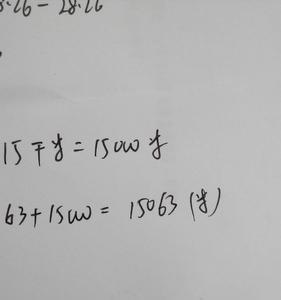 .26-28.26
15千米=15000米
63+15000=15063(米)